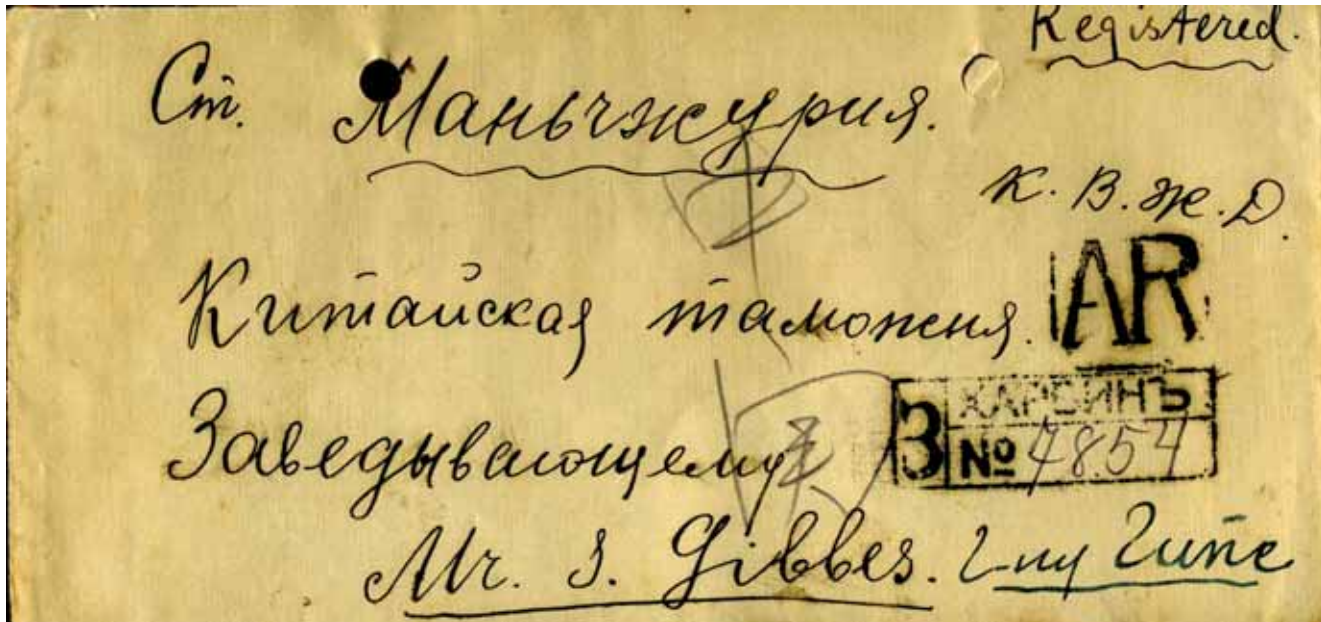 Registered.
Ст. Маньчжурия.
К. В. Ж. Д.
Китайская таможня.
AR
З ХАРБИНЪ
Заведывающему
№ 7854
Mr. S. Gibbes. Г-ну Гипс